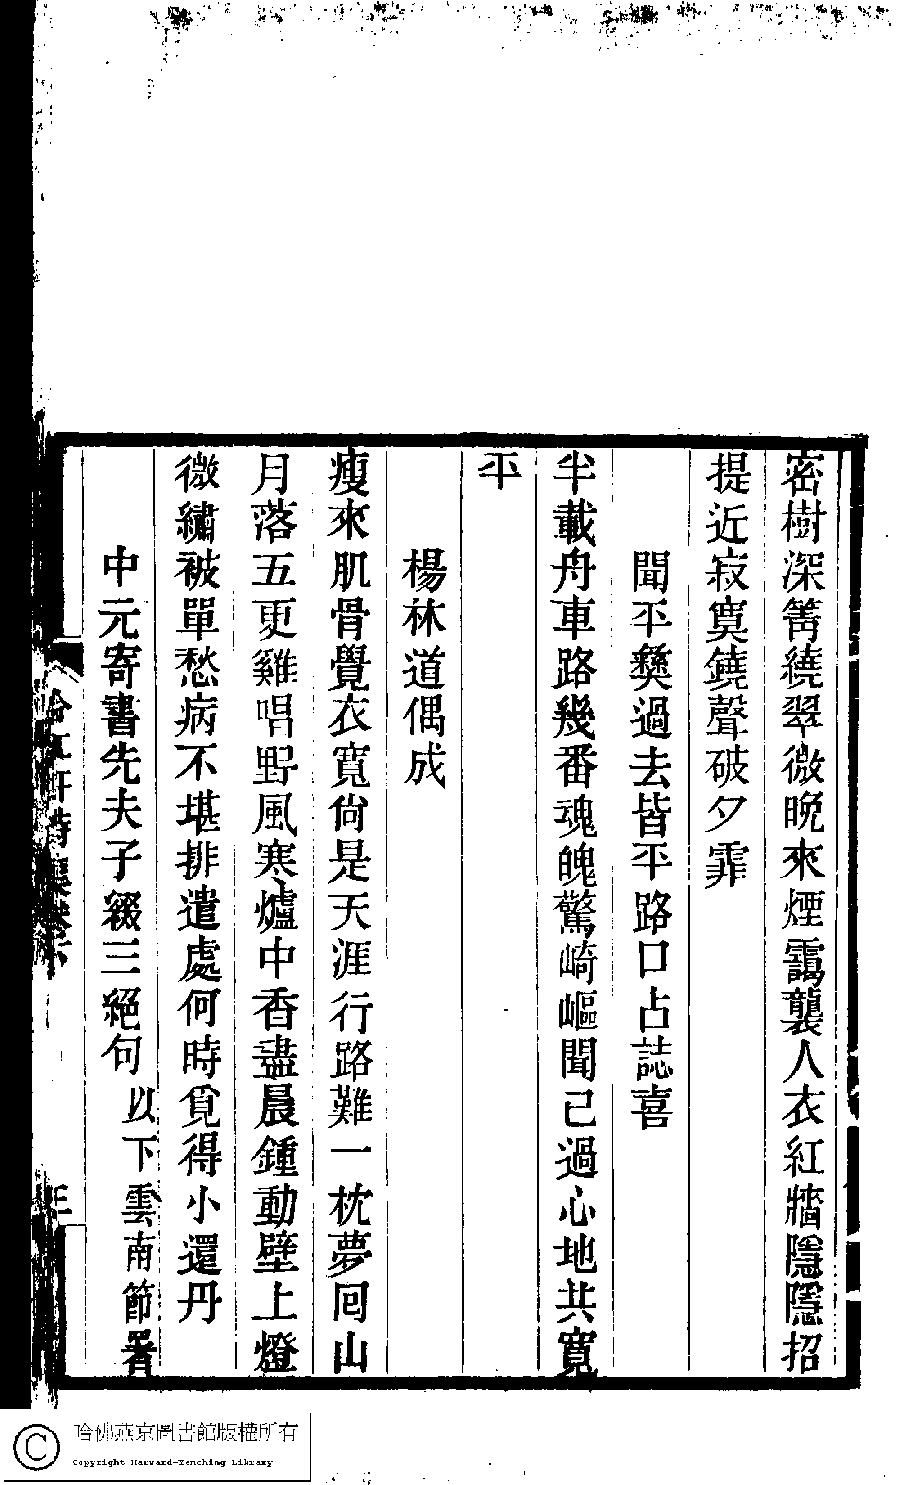 密樹深箐繞翠微晚來煙靄襲人衣紅牆隱隱招
提近寂寞鐃聲破夕霏
聞平彝過去皆平路口占誌喜
半載舟車路幾番魂魄驚崎嶇聞已過心地共寬
平
楊林道偶成
瘦來肌骨覺衣寬尙是天涯行路難一枕夢回山
月落五更雞唱野風寒爐中香盡晨鍾動壁上燈
微繡被單愁病不堪排遣處何時覓得小還丹
中元寄書先夫子綴三絕句以下雲南節署
軒詩集卷下
三
哈佛燕京圖書館版權所有
Copyright Harvard-Yenching Library